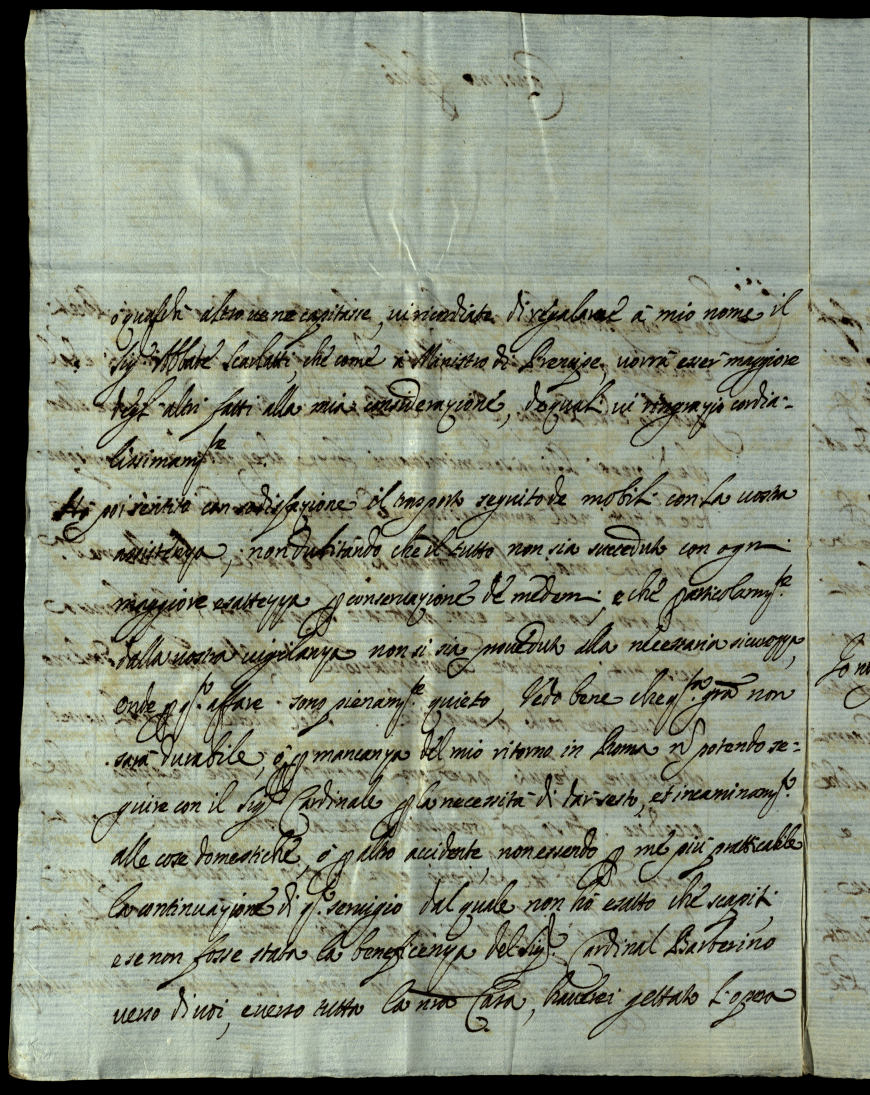 ò qualch' altro ve ne capitasse, vi ricordiate di regalarne à mio nome il
Sig.r Abbate Scarlatti, che come à Ministro di Prencipe, vorrà esser maggiore
degl' altri fatti alla mia considerazione, de quali vi ringrazio cordia-
lissimam.te
Hò poi sentito con sodisfazione il trasporto seguito de mobili con la vostra
assistenza, non dubitando che il tutto non sia succeduto con ogni
maggiore esattezza p conservazione de medemi, e che particolarm.te
dalla vostra vigilanza non si sia proveduto alla necessaria sicurezza,
onde p q.to affare sono pienam.te quieto, Vedo bene che q.sta gra non
sarà durabile, ò p mancanza del mio ritorno in Roma nō potendo se=
guire con il Sig.r Cardinale p la necessità di dar sesto, et incaminam.to
alle cose domestiche, ò p altro accidente, non essendo p me più pratticabile
la continuazione di q.to servigio dal quale non hò esatto che scapiti
e se non fosse stata la beneficenza del Sig.r Cardinal Barberino
verso di voi, e verso tutta la nra Casa, haverei gettato l'opera